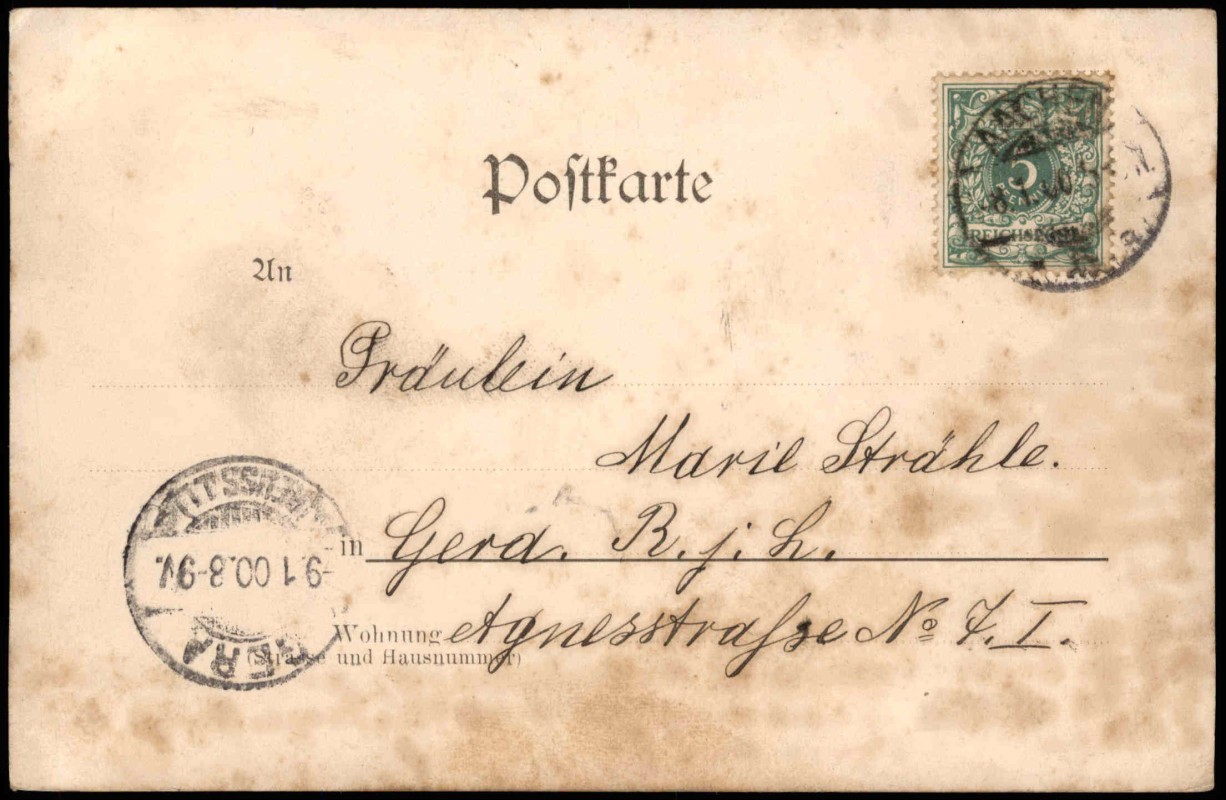 Postkarte
An
5
REICHSPOST
Fräulein
Marie Strähle.
in Gera. R. j. L.
Wohnung Agnesstraſse No 7. I.
(Strasse und Hausnummer)
-9.1.00.8-9V.
GERA